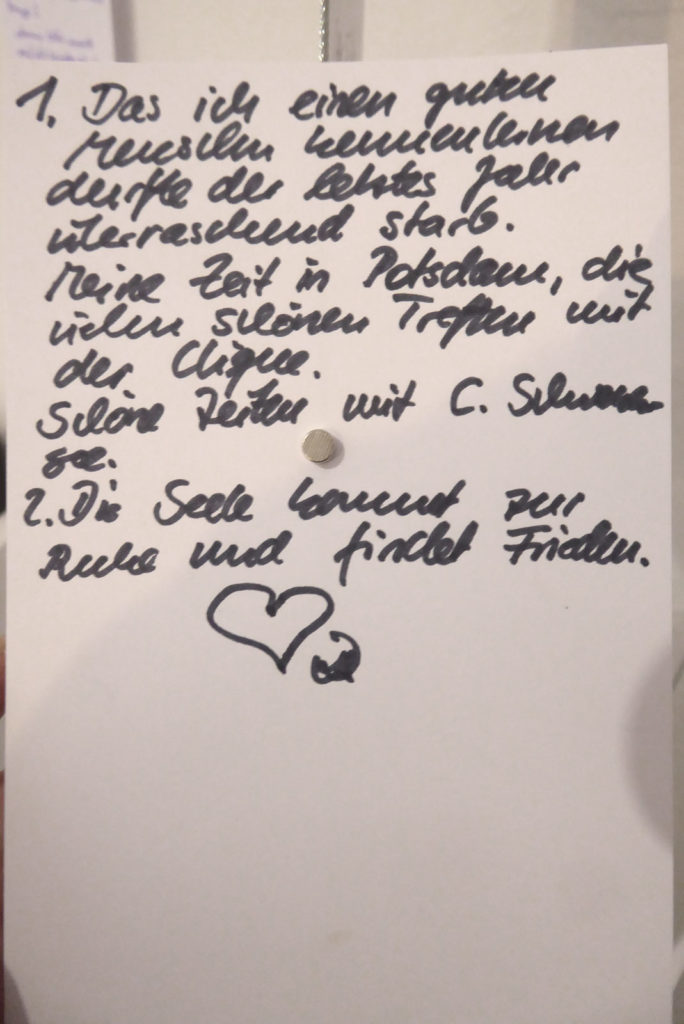 1. Das ich einen guten
Menschen kennenlernen
durfte der letztes Jahr
überraschend starb.
Meine Zeit in Potsdam, die
vielen schönen Treffen mit
der Clique.
Schöne Zeiten mit C.
see.
2. Die Seele kommt zur
Ruhe und findet Frieden.